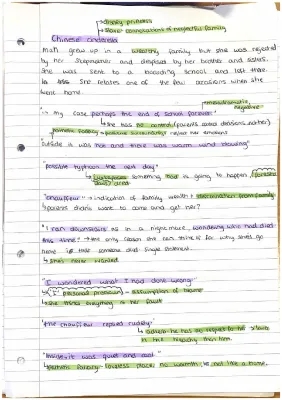 → Chinese princess
→ slave connotations of neglectful family
Chinese cinderella
Mah grew up in a wealthy family but she was rejected
by her stepmother and despised by her brother and sisters.
She was sent to a boarding school and left there.
She relates one of the few occasions when she
went home.
negative
"- my case perhaps the end of school forever"
→ she has no control (parents
pathetic fallacy → surroundings reflect her emotions
outside is was hot and there was warm wind blowing"
"possible typhoon the next day"
→ something bad is going to happen
"chauffeur" → indication of family wealth + from family
→ parents didn't want to come and get her?
"I ran downstairs as in a nightmare, wondering who had died
this time" → the only reason she can think is for why she's go
home is that someone died
→ she's not wanted
"I wondered what I had done wrong"
→ 'I' personal pronoun - assumption of blame
→ she thinks everything is her fault
"the chauffeur replied rudely"
→ he has no respect for her
"Inside it was quiet and cool"
→ pathetic fallacy - loveless place, no warmth, is not like a home.